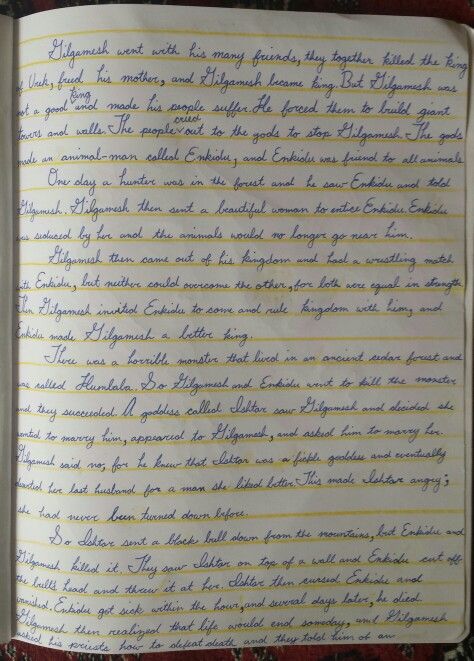 Gilgamesh went with his many friends, they together killed the king
of Uruk, freed his mother, and Gilgamesh became king. But Gilgamesh was
not a good king and made his people suffer. He forced them to build giant
towers and walls. The people cried out to the gods to stop Gilgamesh. The gods
made an animal-man called Enkidu, and Enkidu was friend to all animals.
One day a hunter was in the forest and he saw Enkidu and told
Gilgamesh. Gilgamesh then sent a beautiful woman to entice Enkidu. Enkidu
was seduced by her and the animals would no longer go near him.
Gilgamesh then came out of his kingdom and had a wrestling match
with Enkidu, but neither could overcome the other, for both were equal in strength.
Then Gilgamesh invited Enkidu to come and rule kingdom with him, and
Enkidu made Gilgamesh a better king.
There was a horrible monster that lived in an ancient cedar forest and
was called Humbaba. So Gilgamesh and Enkidu went to kill the monster
and they succeeded. A goddess called Ishtar saw Gilgamesh and decided she
wanted to marry him, appeared to Gilgamesh, and asked him to marry her.
Gilgamesh said no, for he knew that Ishtar was a fickle goddess and eventually
deserted her last husband for a man she liked better. This made Ishtar angry;
she had never been turned down before.
So Ishtar sent a black bull down from the mountains, but Enkidu and
Gilgamesh killed it. They saw Ishtar on top of a wall and Enkidu cut off
the bull's head and threw it at her. Ishtar then cursed Enkidu and
vanished. Enkidu got sick within the hour, and several days later, he died.
Gilgamesh then realized that life would end someday, and Gilgamesh
asked his priests how to defeat death and they told him of an